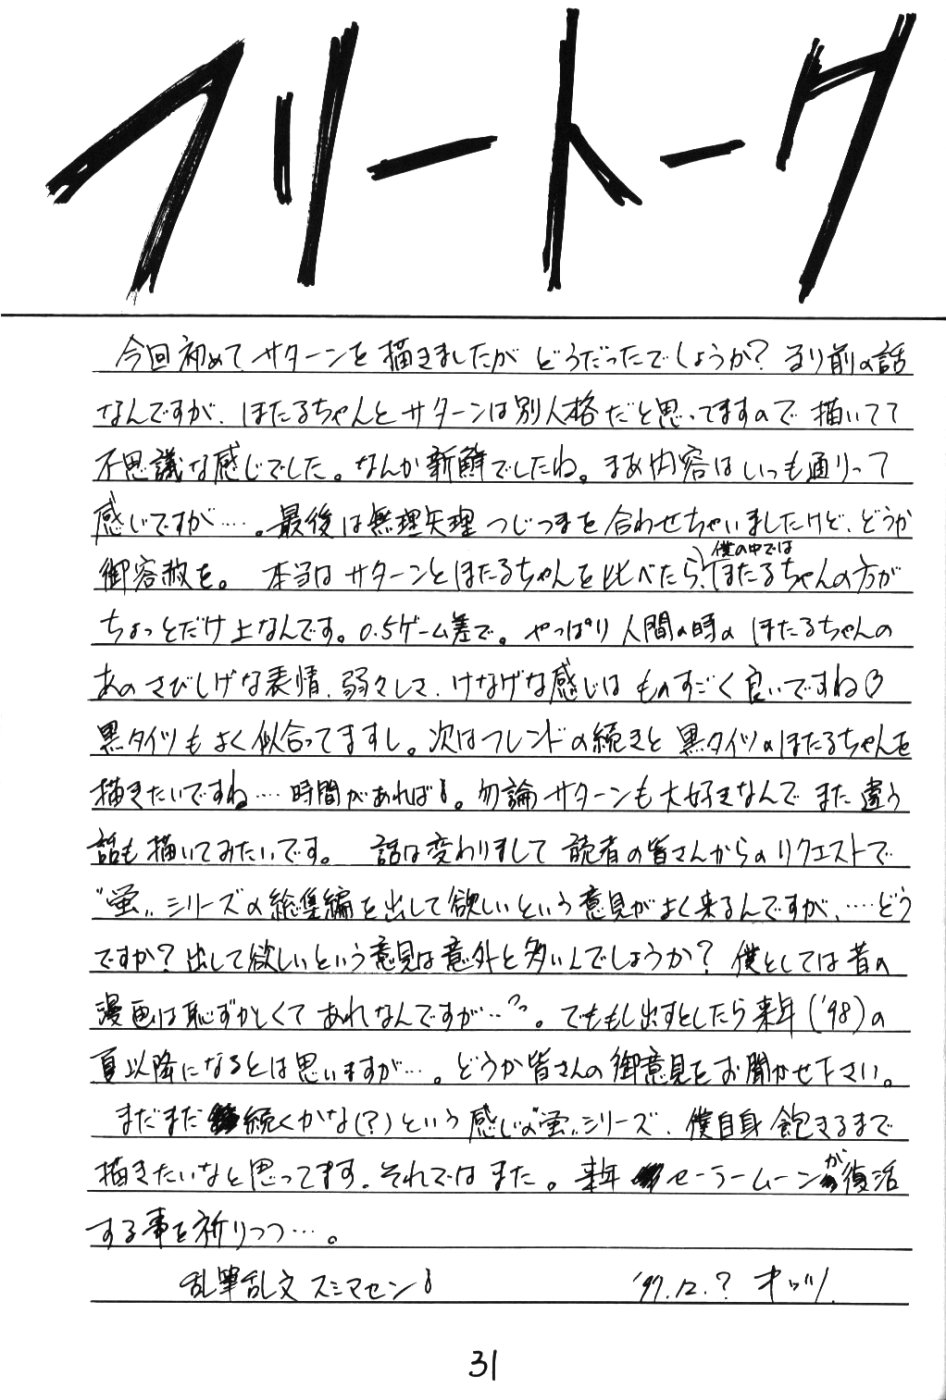 フリートーク
今回初めてサターンを描きましたがどうだったでしょうか? るり前の話
なんですが、ほたるちゃんとサターンは別人格だと思ってますので描いてて
不思議な感じでした。なんか新鮮でしたね。まあ内容はいつも通りって
感じですが…。最後は無理矢理つじつまを合わせちゃいましたけど、どうか
僕の中では
御容赦を。 本当はサターンとほたるちゃんを比べたら、ほたるちゃんの方が
ちょっとだけ上なんです。0.5ゲーム差で。やっぱり人間の時のほたるちゃんの
あのさびしげな表情、弱々しさ、けなげな感じはものすごく良いですね♡
黒タイツもよく似合ってますし。次はフレンドの続きと黒タイツのほたるちゃんを
描きたいですね…時間があれば!。勿論サターンも大好きなんでまた違う
話も描いてみたいです。 話は変わりまして読者の皆さんからのリクエストで
"蛍"シリーズの総集編を出して欲しいという意見がよく来るんですが、…どう
ですか?出して欲しいという意見は意外と多いんでしょうか? 僕としては昔の
漫画は恥ずかしくてあれなんですが…。でももし出すとしたら来年('98)の
夏以降になるとは思いますが…。どうか皆さんの御意見をお聞かせ下さい。
まだまだ続くかな(?)という感じの"蛍"シリーズ、僕自身飽きるまで
描きたいなと思ってます。それではまた。来年セーラームーンが復活
する事を祈りつつ…。
乱筆乱文スミマセン! '97.12.? オッツ
31